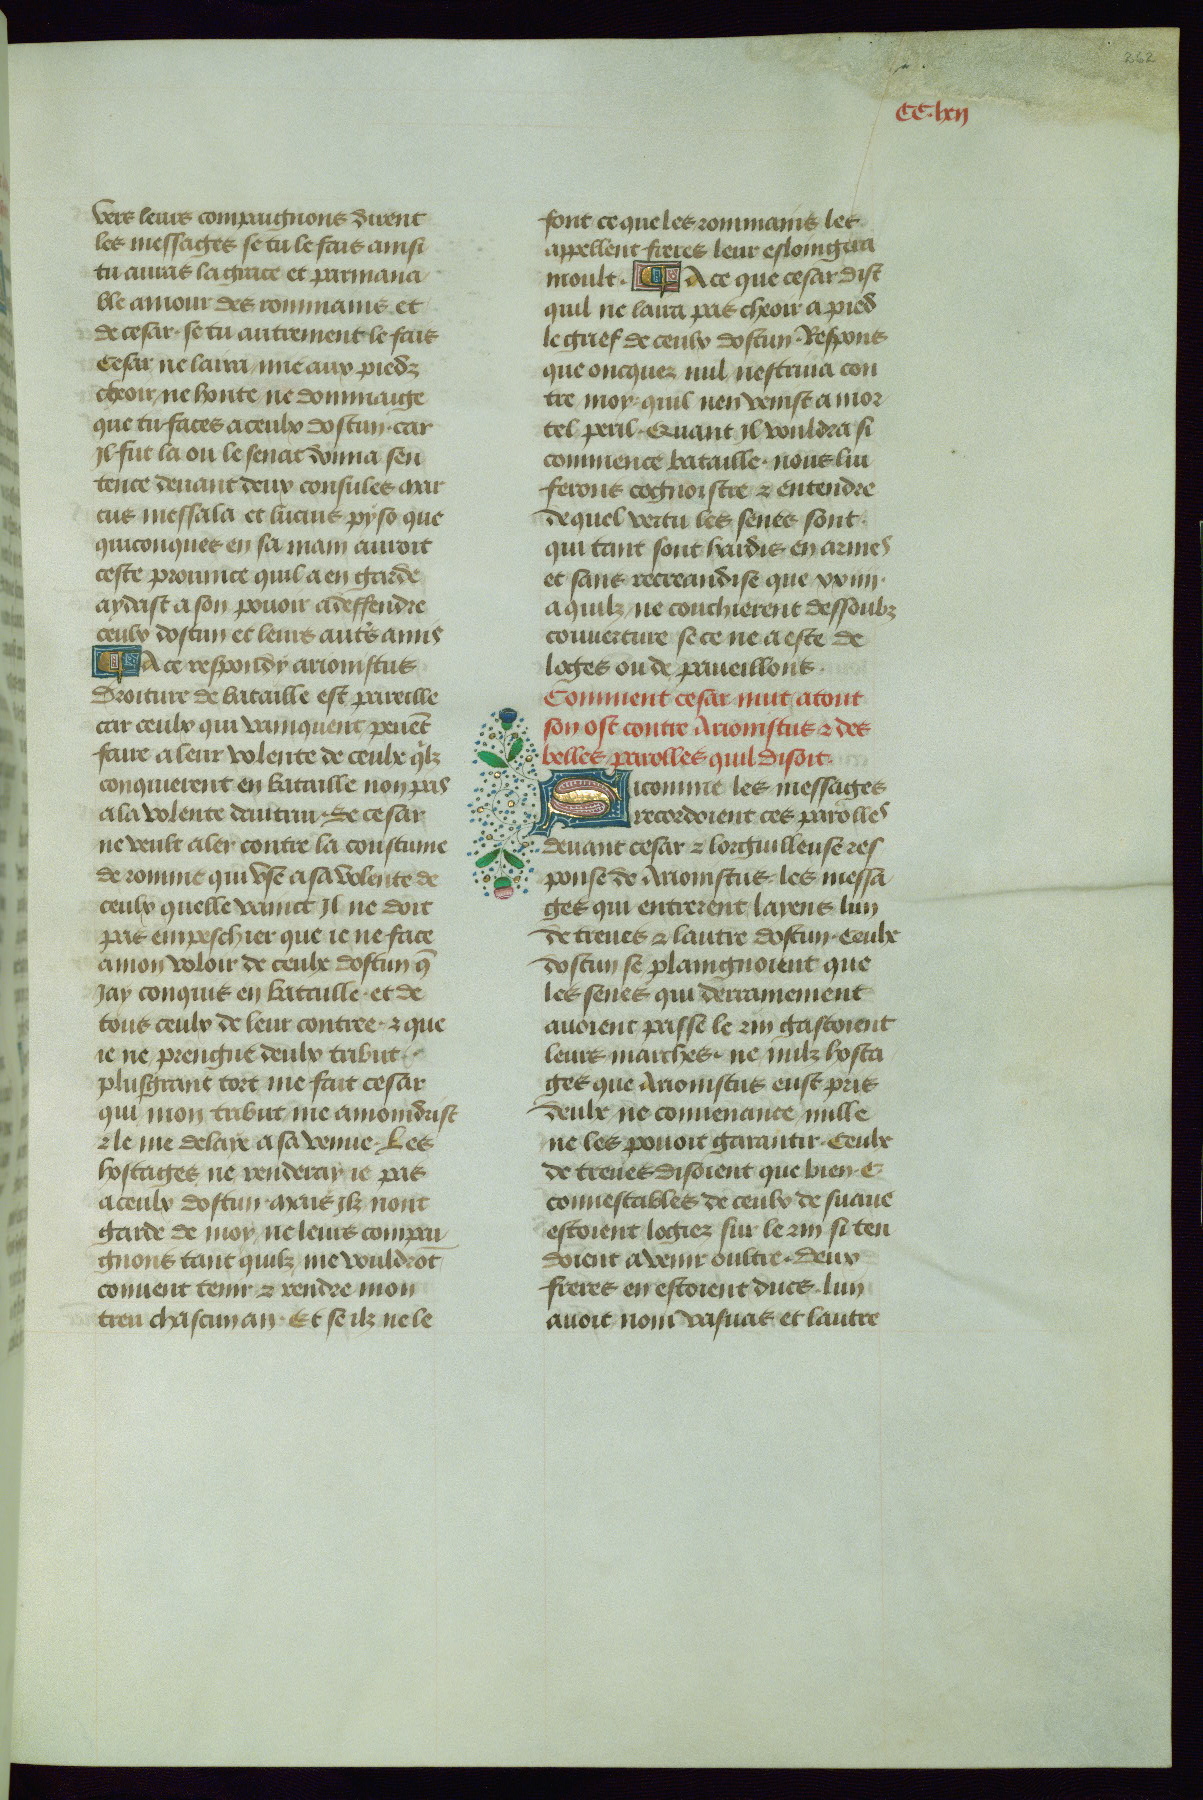 262
CC.lxij
vers leurs compaignons dirent
les messages se tu le fais ainsi
tu auras la grace et parmana
ble amour des rommains et
de cesar. se tu autrement le fais
Cesar ne laira mie aux piedz
cheoir ne honte ne dommaige
que tu faces a ceulx dostun. car
Jl fut la ou le senat donna sen
tence deuant deux consules mar
cus messala et lucius pyso que
quiconques en sa main auroit
ceste prouince quil a en garde
aydast a son pouoir a deffendre
ceulx dostun et leurs autres amis
A ce respondy arionistus
Droiture de bataille est pareille
car ceulx qui vainquent peuēt
faire a leur volente de ceulx qͥlz
conquierent en bataille non pas
a la volente dautrui. Se cesar
ne veult aler contre la coustume
de romme qui vse a sa volente de
ceulx quelle vainct Jl ne doit
pas empeschier que ie ne face
a mon voloir de ceulx dostun q̄
Jay conquis en bataille. et de
tous ceulx de leur contree. ⁊ que
ie ne prengne deulx tribut.
plusgrant tort me fait cesar
qui mon tribut me amoindrist
⁊ le me delaye a sa venue. Les
hostages ne renderay ie pas
a ceulx dostun. mais Jlz nont
garde de moy ne leurs compai
gnons tant quilz me vouldrōt
conuent tenir ⁊ rendre mon
treu chascun an. Et se ilz ne le
font ce que les rommains les
appellent freres leur eslongera
moult. A ce que cesar dist
quil ne laira pas cheoir a pied
le grief de ceulx dostun. Respons
que oncques nul nestriua con
tre moy. quil nen venist a mor
tel peril. Quant Jl vouldra si
commence bataille. nous lui
ferons cognoistre ⁊ entendre
de quel vertu les senes sont.
qui tant sont hardis en armes
et sans recreandise que xxiiii.
a quilz ne couchierent dessoubz
couuerture se ce ne a este de
loges ou de paueillons.
Comment cesar mut atout
son ost contre Arionistus ⁊ des
belles parolles quil disoit.
Sicomme les messages
recordoient ces parolles
deuant cesar ⁊ lorguilleuse res
ponse de Arionistus. les messa
ges qui entrerent layens lun
de treues ⁊ lautre dostun. Ceulx
dostun se plaingnoient que
les senes qui derrainement
auoient passe le rin gastoient
leurs marches. ne nulz hosta
ges que Arionistus eust pris
deulx ne conuenance nulle
ne les pouoit garantir. Ceulx
de treues disoient que bien C
connestables de ceulx de suaue
estoient logiez sur le rin si ten
doient a venir oultre. Deux
freres en estoient duces. lun
auoit nom vasuas et lautre